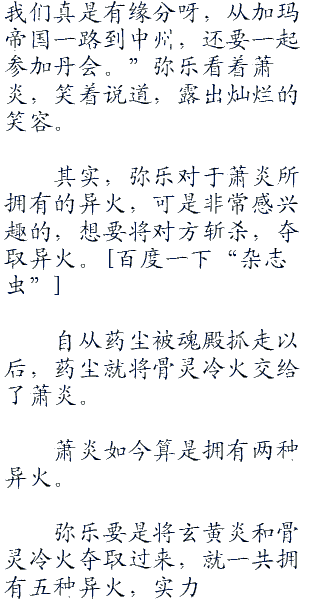 我们真是有缘分呀，从加玛
帝国一路到中州，还要一起
参加丹会。”弥乐看着萧
炎，笑着说道，露出灿烂的
笑容。
其实，弥乐对于萧炎所
拥有的异火，可是非常感兴
趣的，想要将对方斩杀，夺
取异火。[百度一下“杂志
虫”]
自从药尘被魂殿抓走以
后，药尘就将骨灵冷火交给
了萧炎。
萧炎如今算是拥有两种
异火。
弥乐要是将玄黄炎和骨
灵冷火夺取过来，就一共拥
有五种异火，实力